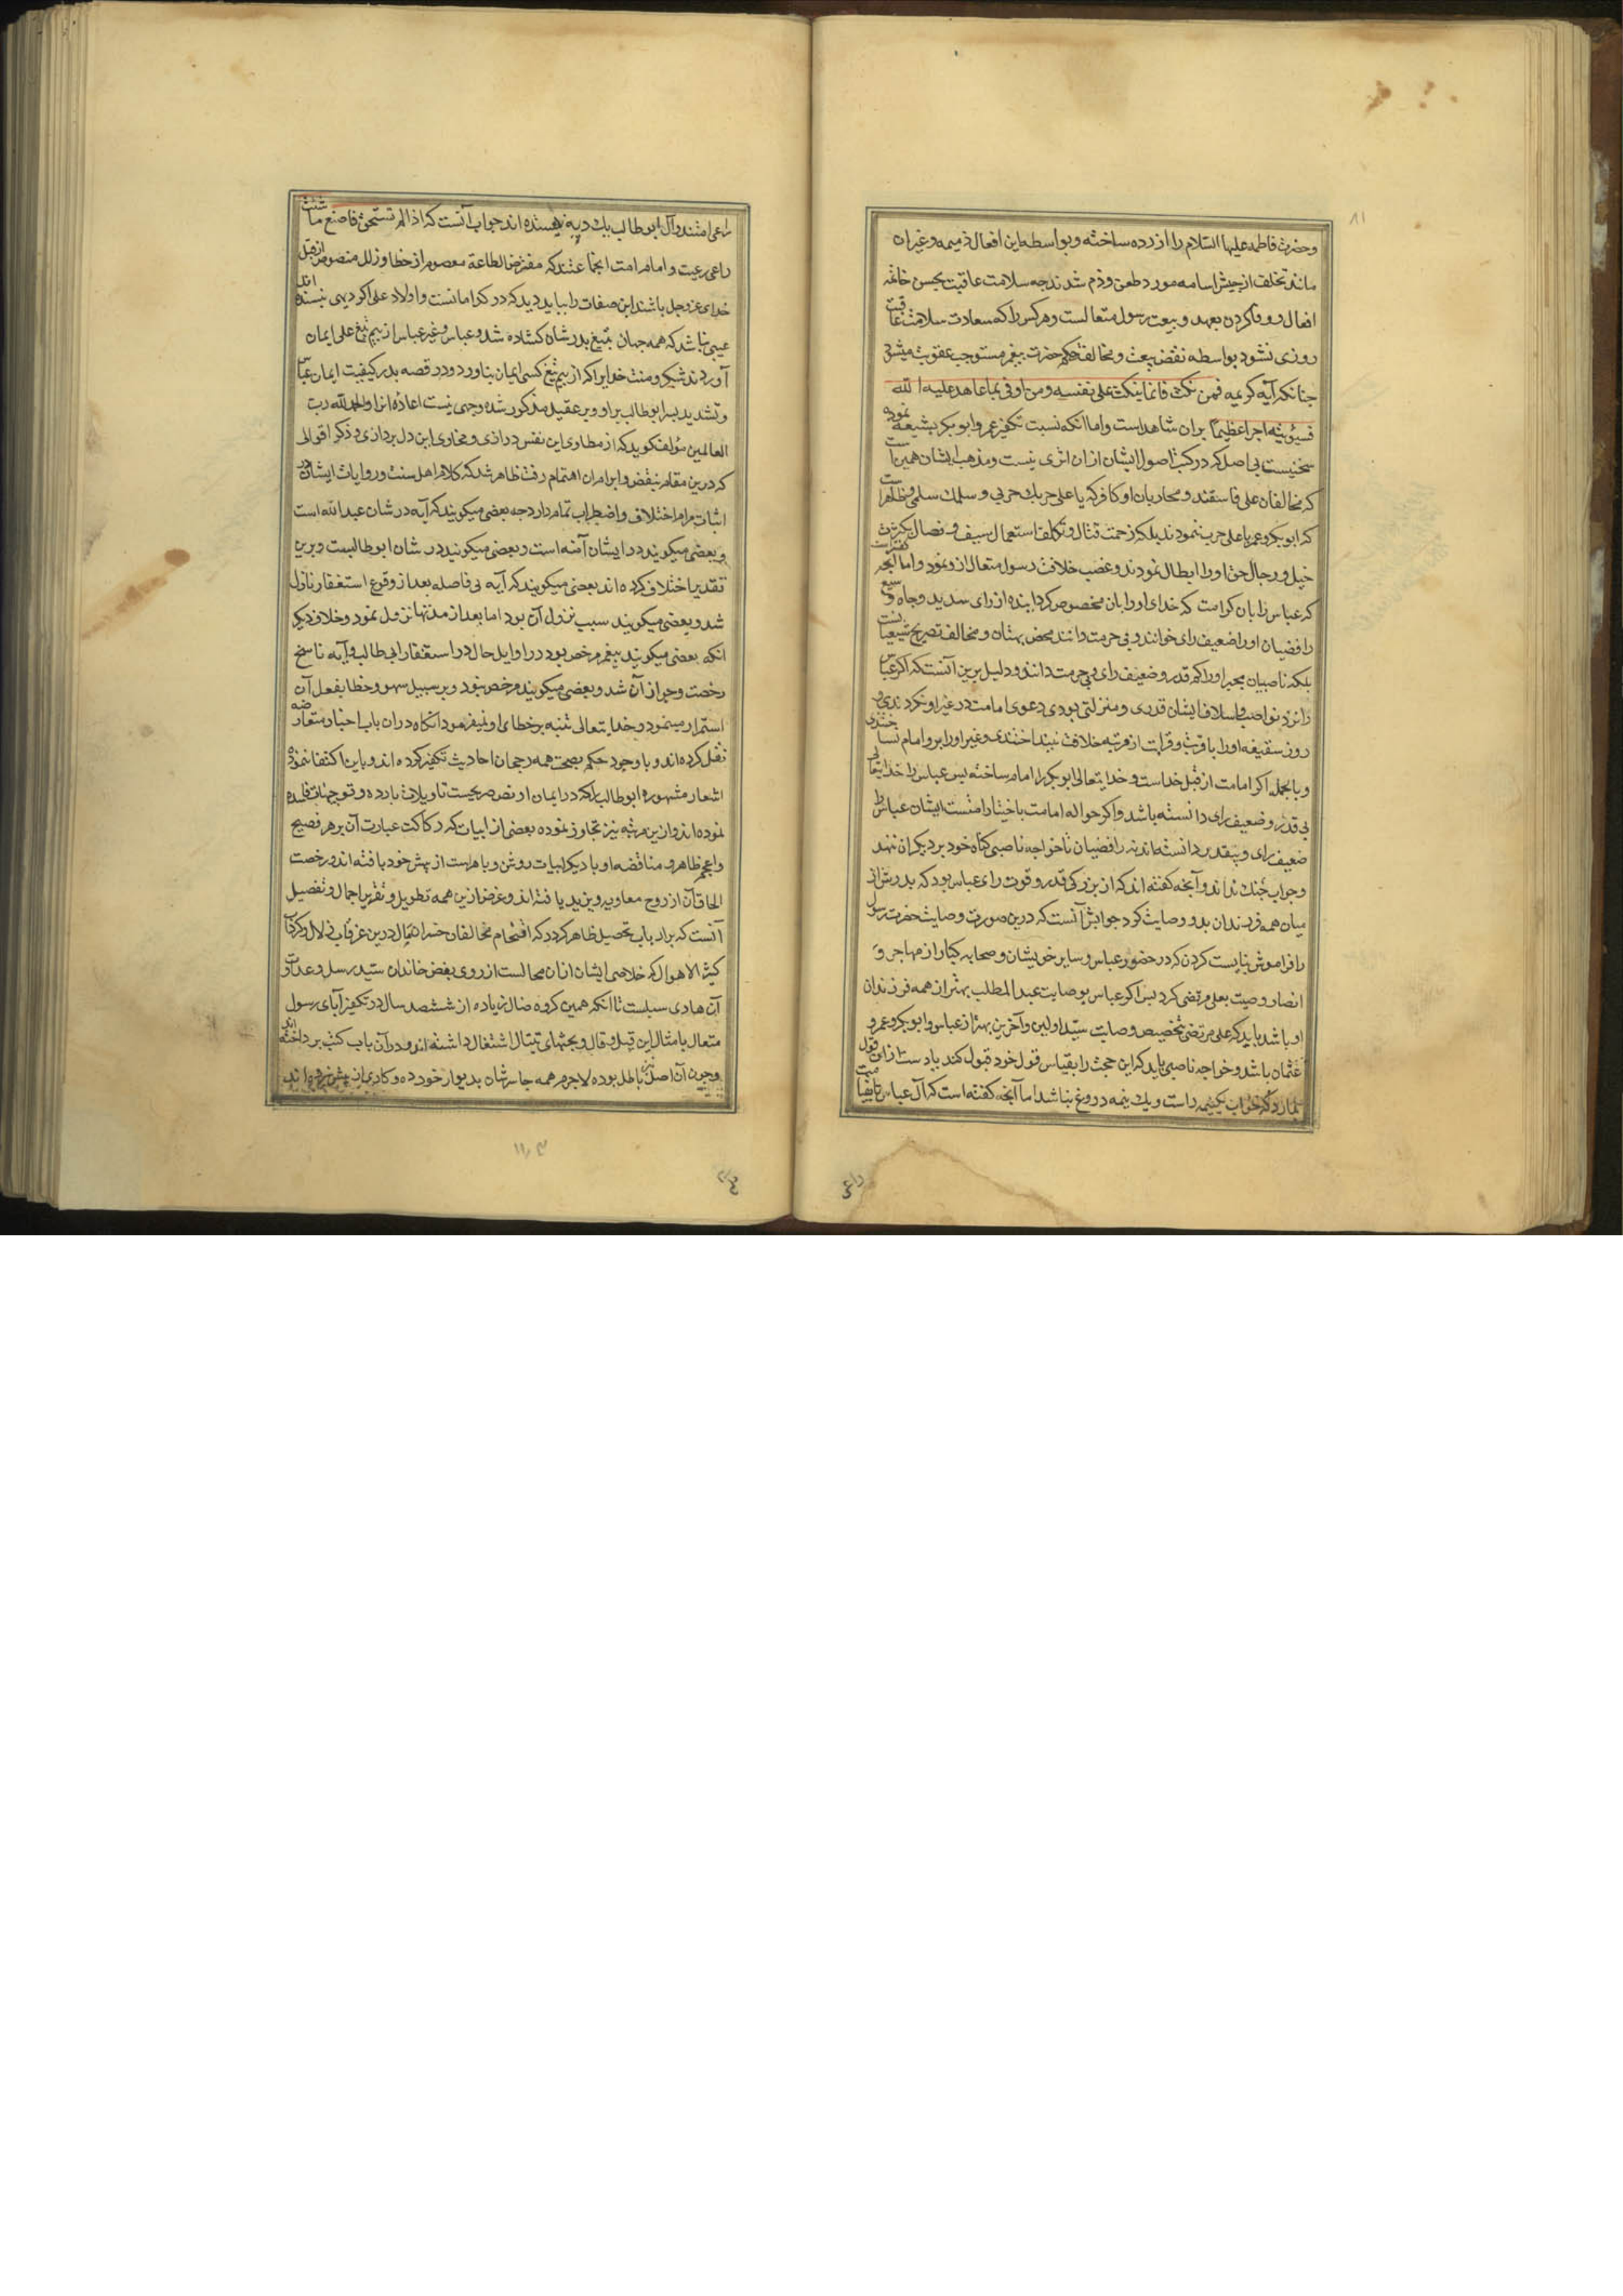 ۸۱
وحضرت فاطمه علیها السلام را ازرده ساخته وبواسطه این افعال ذمیمه وغیران
مانند تخلف از جیش اسامه مورد طعن وذم شدند چه سلامت عاقبت بحسن خاتمه
افعال ووفا کردن بعهد وبیعت رسول متعالست وهر کس را که سعادت سلامت عاقبت
روزی نشود بواسطه نقض بیعت ومخالفت حکم حضرت پیغمبر مستوجب عقوبت میشود
چنانکه آیه کریمه فمن نکث فانما ینکث علی نفسه ومن اوفی بما عاهد علیه الله
فسیؤتیه اجرا عظیما بران شاهد است واما انکه نسبت تکفیر عمر وابو بکر بشیعه نموده
سخنیست بی اصل که در کتب اصول ایشان ازان اثری نیست ومذهب ایشان همین است
که مخالفان علی فاسقند ومحاربان او کافر که یا علی حربک حربی وسلمک سلمی وظاهر است
که ابو بکر وعمر با علی حرب ننمودند بلکه زحمت قتال وتکلف استعمال سیف ونصال بکثرت
خیل ورجال حق اورا ابطال نمودند وغصب خلافت رسول متعال ازو نمود واما آنچه گفته است
که عباس را بان کرامت که خدای اورا بان مخصوص کردانیده از رای سدید وجاه وسیع
رافضیان اورا ضعیف رای خوانند وبی حرمت دانند محض بهتان ومخالف تصریح شیعیانست
بلکه ناصبیان مجبر اورا کم قدر وضعیف رای وبی حرمت دانند ودلیل برین آنست که اگر عباس
را نزد نواصب واسلاف ایشان قدری ومنزلتی بودی دعوی امامت در غیر او نکردندی و
روز سقیفه اورا با قربت وقرابت از مرتبه خلافت نینداختندی وغیر اورا برو امام نساختندی
وبالجمله اگر امامت از قبل خداست وخدایتعالی ابو بکر را امام ساخته پس عباس را خدایتعالی
بی قدر وضعیف رای دانسته باشد واگر حواله امامت باختیار امتست ایشان عباس را
ضعیف رای وبیقدر دانسته اند نه رافضیان تا خواجه ناصبی گناه خود بر دیگران ننهد
وجواب خنک نداند وآنچه گفته اند که از بزرگی قدر وقوت رای عباس بود که پدرش از
میان همه فرزندان بدو وصایت کرد جوابش آنست که درین صورت وصایت حضرت رسول
را فراموش نبایست کردن که در حضور عباس وسایر خویشان وصحابه کبار از مهاجر و
انصار وصیت بعلی مرتضی کرد پس اگر عباس بوصایت عبد المطلب بهتر از همه فرزندان
او باشد باید که علی مرتضی بتخصیص وصایت سید اولین وآخرین بهتر از عباس وابو بکر وعمر و
عثمان باشد وخواجه ناصبی باید که این حجت را بقیاس قول خود قبول کند یا دست از این قول
بدارد که جواب یکنیمه راست ویک نیمه دروغ نباشد اما آنچه گفته است که آل عباس تا بقیامت
راعی امتند وآل ابو طالب بیک دیه نپسندیده اند جواب آنست که اذا لم تستحی فاصنع ما شئت
راعی رعیت وامام امت انجماعتند که مفترض الطاعة معصوم از خطا وزلل منصوص از قبل
خدای عز وجل باشند این صفات را بباید دید که در کدامانست واولاد علی اگر دیهی نپسندیده اند
عیبی نباشد که همه جهان بتیغ پدرشان گشاده شد وعباس وغیر عباس از بیم تیغ علی ایمان
آوردند شکر ومنت خدایرا که از بیم تیغ کسی ایمان نیاورد ودر قصه بدر کیفیت ایمان عباس
وتشدید پسر ابو طالب بر او وبر عقیل مذکور شده وجهی نیست اعاده انرا والحمد لله رب
العالمین مؤلف گوید که از مطاوی این نفس درازی وفحاوی این دل پردازی وذکر اقوالی
که درین مقام بنقض وابرام ان اهتمام رفت ظاهر شد که کلام اهل سنت وروایات ایشان در
اثبات مرام اختلاف واضطراب تمام دارد چه بعضی میگویند که آیه در شان عبد الله است
وبعضی میگویند در ایشان آمنه است وبعضی میگویند در شان ابو طالبست وبرین
تقدیر اختلاف کرده اند بعضی میگویند که آیه بی فاصله بعد از وقوع استغفار نازل
شد وبعضی میگویند سبب نزول آن بود اما بعد از مدتها نزول نمود وخلاف دیگر
انکه بعضی میگویند پیغمبر مرخص بود در اوایل حال در استغفار ابی طالب وآیه ناسخ
رخصت وجواز آن شد وبعضی میگویند مرخص نبود وبر سبیل سهو وخطا بفعل آن
استمرار مینمود وخدایتعالی تنبه بر خطای او نمیفرمود انگاه دران باب اخبار متعارضه
نقل کرده اند وبا وجود حکم بصحت همه رجحان احادیث تکفیر کرده اند وباین اکتفا ننموده
اشعار مشهوره ابو طالب را که در ایمان او نص صریحست تاویلات بارده وتوجیهات فاسده
نموده اند وازین مرتبه نیز تجاوز نموده بعضی از ابیات که رکاکت عبارت آن بر هر فصیح
واعجم ظاهر ومناقضه او با دیگر ابیات روشن وباهرست از پیش خود بافته اند ورخصت
الحاق آن از روح معاویه ویزید یافته اند وغرض ازین همه تطویل وتقریر اجمال وتفصیل
آنست که بر ارباب تحصیل ظاهر گردد که اقتحام مخالفان خسران مآل درین غرقاب
کثیر الاهوال که خلاصی ایشان ازان محالست از روی بغض خاندان سید رسل وعداوت
آن هادی سبلست تا انکه همین گروه ضال زیاده از ششصد سال در تکفیر آبای رسول
متعال بامثال این قیل وقال وبحثهای تیتال اشتغال داشته اند ودر آن باب کتب پرداخته اند
وچون آن اصل باطل بوده لاجرم همه جا سرشان بدیوار خورده وکاری از پیش نبرده اند